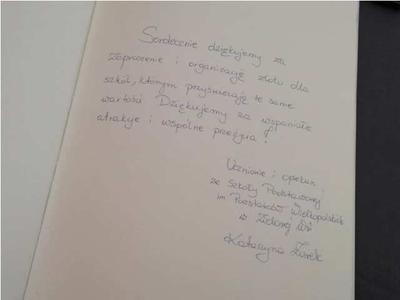 Serdecznie dziękujemy za
zaproszenie i organizację zlotu dla
szkół, którym przyświecają te same
wartości. Dziękujemy za wspaniałe
atrakcje i wspólne przeżycia!
Uczniowie i opiekun
ze Szkoły Podstawowej
im Powstańców Wielkopolskich
w
Katarzyna Żurek